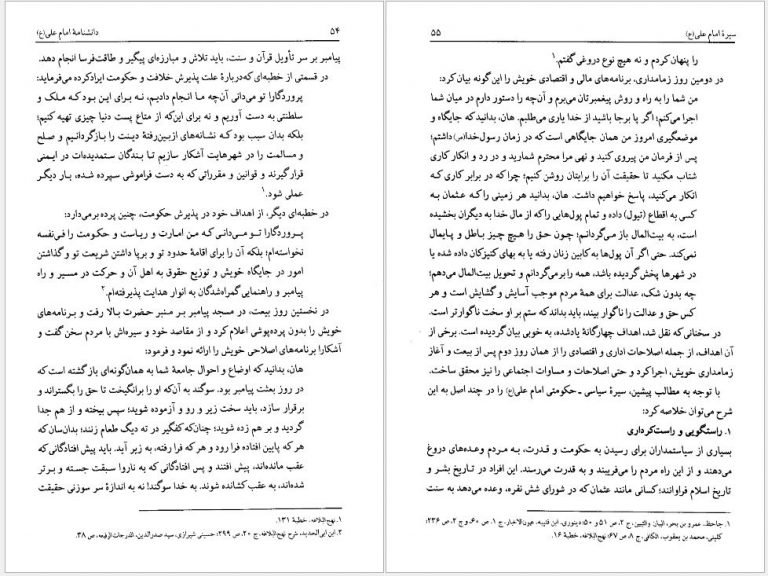 ۵۴
دانشنامهٔ امام علی(ع)
پیامبر بر سر تأویل قرآن و سنت، باید تلاش و مبارزه‌ای پیگیر و طاقت‌فرسا انجام دهد.
در قسمتی از خطبه‌ای که دربارهٔ علت پذیرش خلافت و حکومت ایراد کرده می‌فرماید:
پروردگارا تو می‌دانی آن‌چه ما انجام دادیم، نه برای این بود که ملک و
سلطنتی به دست آوریم و نه برای این‌که از متاع پست دنیا چیزی تهیه کنیم؛
بلکه بدان سبب بود که نشانه‌های ازبین‌رفتهٔ دینت را بازگردانیم و صلح
و مسالمت را در شهرهایت آشکار سازیم تا بندگان ستمدیده‌ات در ایمنی
قرار گیرند و قوانین و مقرراتی که به دست فراموشی سپرده شده، بار دیگر
عملی شود.۱
در خطبه‌ای دیگر، از اهداف خود در پذیرش حکومت، چنین پرده برمی‌دارد:
پروردگارا تو می‌دانی که من امارت و ریاست و حکومت را فی‌نفسه
نخواسته‌ام؛ بلکه آن را برای اقامهٔ حدود تو و برپا داشتن شریعت تو و گذاشتن
امور در جایگاه خویش و توزیع حقوق به اهل آن و حرکت در مسیر و راه
پیامبر و راهنمایی گمراه‌شدگان به انوار هدایت پذیرفته‌ام.۲
در نخستین روز بیعت، در مسجد پیامبر بر منبر حضرت بالا رفت و برنامه‌های
خویش را بدون پرده‌پوشی اعلام کرد و از مقاصد خود و سیره‌اش با مردم سخن گفت و
آشکارا برنامه‌های اصلاحی خویش را ارائه نمود و فرمود:
هان، بدانید که اوضاع و احوال جامعهٔ شما به همان‌گونه‌ای بازگشته است که
در روز بعثت پیامبر بود. سوگند به آن‌که او را برانگیخت تا حق را بگستراند و
برقرار سازد، باید سخت زیر و رو و آزموده شوید؛ سپس بیخته و از هم جدا
گردید و بر هم زده شوید؛ چنان‌که کفگیر در ته دیگ طعام زنند؛ بدان‌سان که
هر که پایین افتاده فرا رود و هر که فرا رفته، به زیر آید. باید پیش افتادگانی که
عقب مانده‌اند، پیش افتند و پس افتادگانی که به ناروا سبقت جسته و برتر
شده‌اند، به عقب کشانده شوند. به خدا سوگند! نه به اندازهٔ سر سوزنی حقیقت
۱. نهج‌البلاغه، خطبهٔ ۱۳۱.
۲. ابن ابی‌الحدید، شرح نهج‌البلاغه، ج ۲۰، ص ۲۹۹؛ حسینی شیرازی، سید صدرالدین، القدرجات الرفیعه، ص ۳۸.
۵۵
سیرهٔ امام علی(ع)
را پنهان کردم و نه هیچ نوع دروغی گفتم.۱
در دومین روز زمامداری، برنامه‌های مالی و اقتصادی خویش را این‌گونه بیان کرد:
من شما را به راه و روش پیغمبرتان می‌برم و آن‌چه را دستور دارم در میان شما
اجرا می‌کنم؛ اگر پا برجا باشید از خدا یاری می‌طلبم. هان، بدانید که جایگاه و
موضعگیری امروز من همان جایگاهی است که در زمان رسول‌خدا(ص) داشتم؛
پس از فرمان من پیروی کنید و نهی مرا محترم شمارید و در رد و انکار کاری
شتاب مکنید تا حقیقت آن را برایتان روشن کنیم؛ چرا که در برابر کاری که
انکار می‌کنید، پاسخ خواهیم داشت. هان، بدانید هر زمینی را که عثمان به
کسی به اقطاع (تیول) داده و تمام پول‌هایی را که از مال خدا به دیگران بخشیده
است، به بیت‌المال باز می‌گردانم؛ چون حق را هیچ چیز باطل و پایمال
نمی‌کند. حتی اگر آن پول‌ها به کابین زنان رفته یا به بهای کنیزکان داده شده یا
در شهرها پخش گردیده باشد، همه را برمی‌گردانم و تحویل بیت‌المال می‌دهم؛
چه بدون شک، عدالت برای همهٔ مردم موجب آسایش و گشایش است و هر
کس حق و عدالت را ناگوار بیند، باید بداند که ستم بر او سخت ناگوارتر است.
در سخنانی که نقل شد، اهداف چهارگانهٔ یادشده، به خوبی بیان گردیده است. برخی از
آن اهداف، از جمله اصلاحات اداری و اقتصادی را از همان روز دوم پس از بیعت و آغاز
زمامداری خویش، اجرا کرد و حتی اصلاحات و مساوات اجتماعی را نیز محقق ساخت.
با توجه به مطالب پیشین، سیرهٔ سیاسی ـ حکومتی امام علی(ع) را در چند اصل به این
شرح می‌توان خلاصه کرد:
۱. راستگویی و راست‌کرداری
بسیاری از سیاستمداران برای رسیدن به حکومت و قدرت، به مردم وعده‌های دروغ
می‌دهند و از این راه مردم را می‌فریبند و به قدرت می‌رسند. این افراد در تاریخ بشر و
تاریخ اسلام فراوانند؛ کسانی مانند عثمان که در شورای شش نفره، وعده می‌دهد به سنت
۱. جاحظ، عمرو بن بحر، البیان والتبیین، ج ۲، ص ۵۱ و ۵۰؛ دینوری، ابن قتیبه، عیون‌الاخبار، ج ۱، ص ۶۰، و ج ۲، ص ۲۳۶؛
کلینی، محمد بن یعقوب، الکافی، ج ۸، ص ۶۷؛ نهج‌البلاغه، خطبهٔ ۱۶.